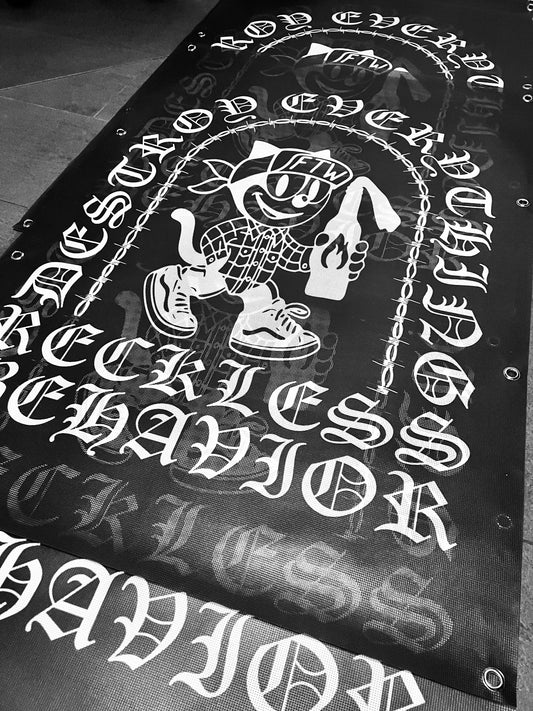 ROY EVERYT
IFTW
DESTROY EVERYTHINGS
IFTW
RECKLESS
BEHAVIOR
ECKLESS
HAVIOR